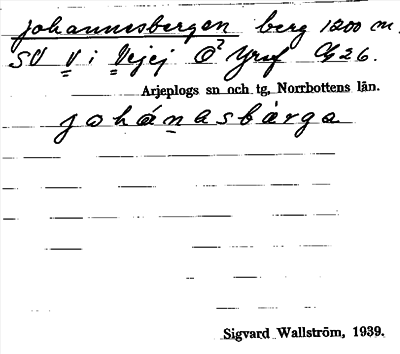 Johannesbergen berg 1200 m.
SV V i Vejej
Arjeplogs sn och tg, Norrbottens län.
johánasbärga
Sigvard Wallström, 1939.